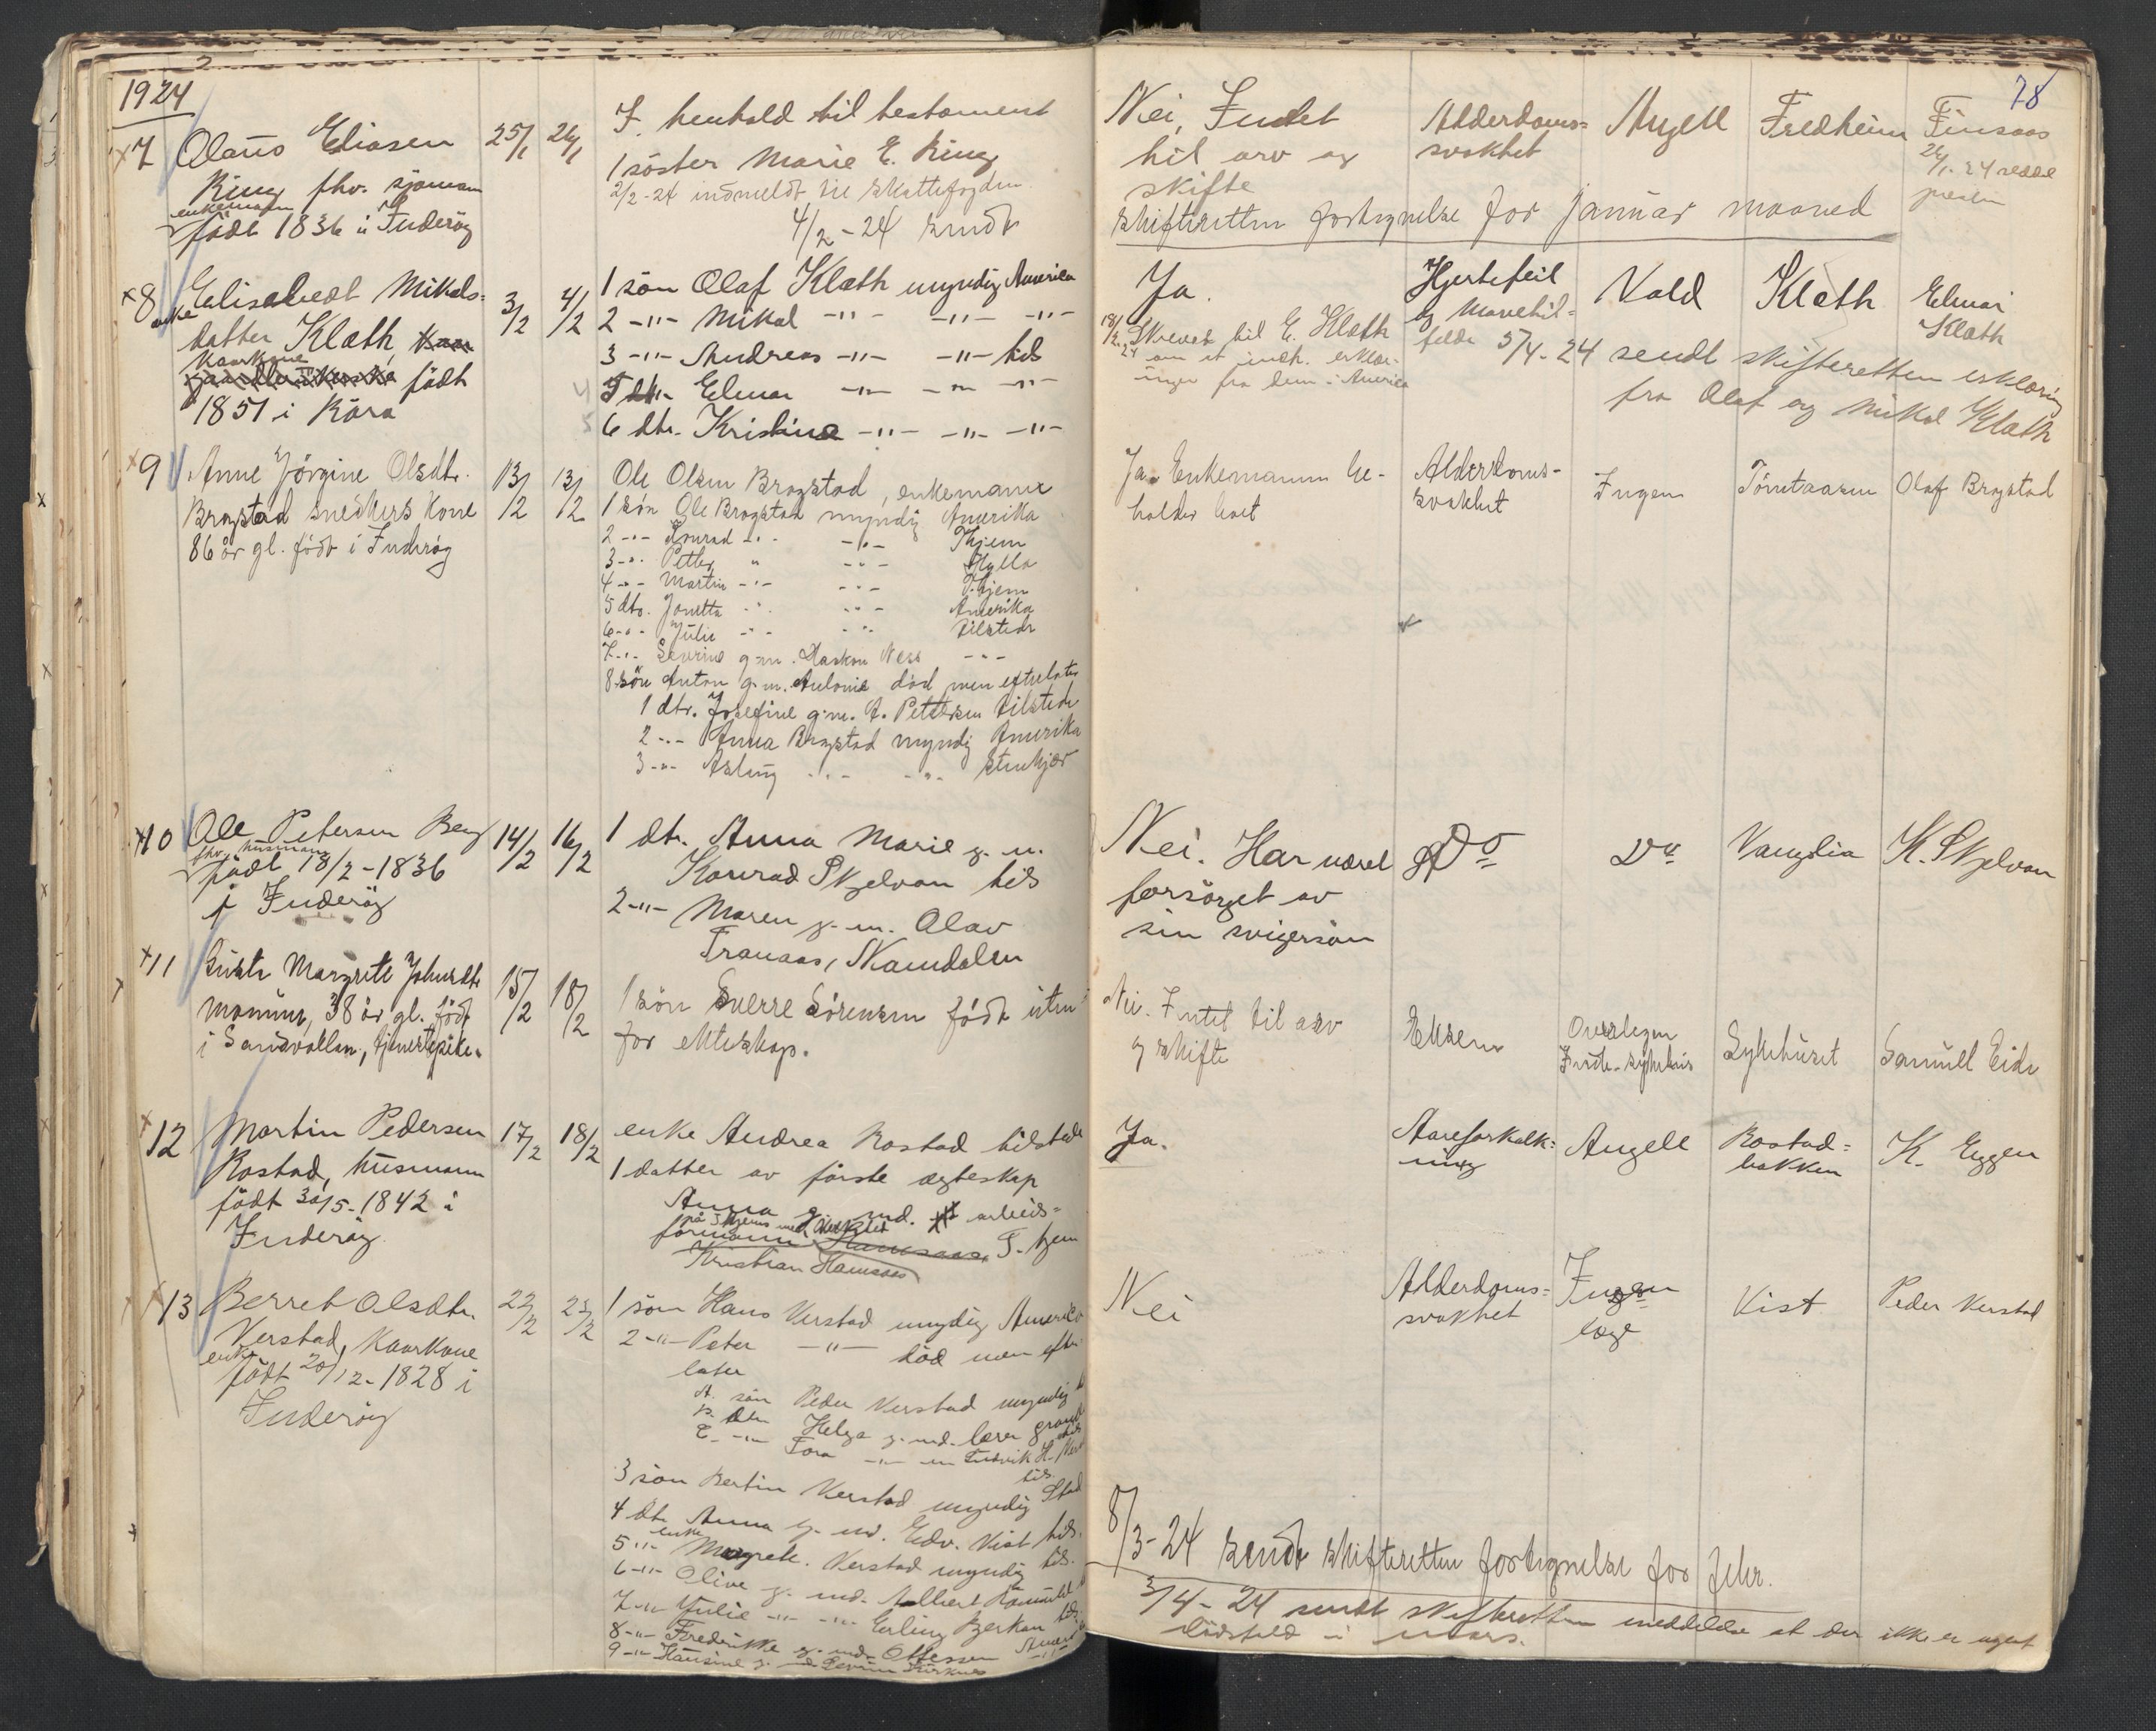 1924
78
7 Olaus Eliasen
Ring fhv. sjømann
enkemann
født 1836 i Inderøy
25/1 26/1
I henhold til testament
1 søster Marie E. Ring
2/2-24 indmeldt til skattefogden
4/2-24 sendt
Nei, Intet
til arv og
skifte
Alderdoms-
svakhet
Angell
Fredheim
Finsaas
skifteretten fortegnelse for januar maaned
8 Elisabedt Mikals-
enke
datter Klæth,
Kaarkone
født
1851 i Røra
3/2 4/2
1 søn Olaf Klæth myndig Amerika
2 -"- Mikal -"- -"- -"-
3 -"- Andreas -"- -"- tils
Elmar -"- -"- -"-
6 dtr. Kristine -"- -"- -"-
Ja.
18/2 24 Skrevet til E. Klæth
om at indh. erklær-
inger fra dem i Amerika
Hjertefeil
og mavetil-
felde
Vold
Klæth
Elmar
Klæth
5/4-24 sendt skifteretten erklæring
fra Olaf og Mikal Klæth
9 Anne Jørgine Olsdtr.
Brogstad snedkers kone
86 år gl. født i Inderøy
13/2 13/2
Ole Olsen Brogstad, enkemann
1 søn Ole Brogstad myndig Amerika
2 -"- Konrad -"- -"- Thjem
3 -"- Petter " -"- Hylla
4 -"- Martin -"- -"- Thjem
5 dtr. Jonetta -"- -"- Amerika
6 -"- Julie -"- -"- tilstede
7 -"- Severine g.m. Haakon Ness -"-
8 søn Anton g.m. Antonie død men efterlater
1 dtr. Josefine g.m. A. Pettersen tilstede
2 -"- Anna Brogstad myndig Amerika
3 -"- Aslaug -"- -"- Stenkjær
Ja. Enkemannen be-
holder boet
Alderdoms-
svakhet
Ingen
Tømtaasen
Olaf Brogstad
10 Ole Petersen Berg
fhv. husmann
født 18/2-1836
i Inderøy
14/2 16/2
1 dtr. Anna Marie g. m.
Konrad Skjelvan tils
2 -"- Maren g. m. Olav
Tranaas, Namdalen
Nei. Har været
forsørget av
sin svigersøn
Do
Do
Vangslia
K. Skjelvan
11 Margrete Johnsdtr
38 år gl. født
i Sandvollan, tjenestepike.
15/2 18/2
1 søn Sverre Sørensen født uten-
for ekteskap.
Nei. Intet til arv
og skifte
Eksem
Overlegen
Sykehuset
Samuel Eide
12 Martin Pedersen
Rostad, husmann
født 30/5-1842 i
Inderøy
17/2 18/2
enke Andrea Rostad tilstede
1 datter av første ægteskap
Anna g. md. arbeids-
formann T.hjem
Kristian Hamsaas
Ja.
Aareforkalk-
ning
Angell
Rostad-
bakken
K. Eggen
13 Berret Olsdtr.
Verstad, Kaarkone
enke
født 20/12-1828 i
Inderøy
22/2 23/2
1 søn Hans Verstad myndig Amerika
2 -"- Peter -"- død men efter-
later
A. søn Peder Verstad myndig
B. dtr Helga g. md. lærer
C. -"- Tora -"- -"-
tils.
3 søn Bertin Verstad myndig
4 dtr Anna g. md. Edv. Vist tils.
enke
5 -"- Margrete. Verstad myndig tils.
6 -"- Olive g. md. Albert
7 -"- Julie -"- -"- Erling Bjerkan tils.
8 -"- Frederikke g. md. Ottessen
9 -"- Hansine g.
Nei
Alderdoms-
svakhet
Ingen
læge
Vist
Peder Verstad
8/3-24 sendt skifteretten fortegnelse for febr.
3/4-24 sendt skifteretten meddelelse at der ikke er noget
dødsfald i mars.